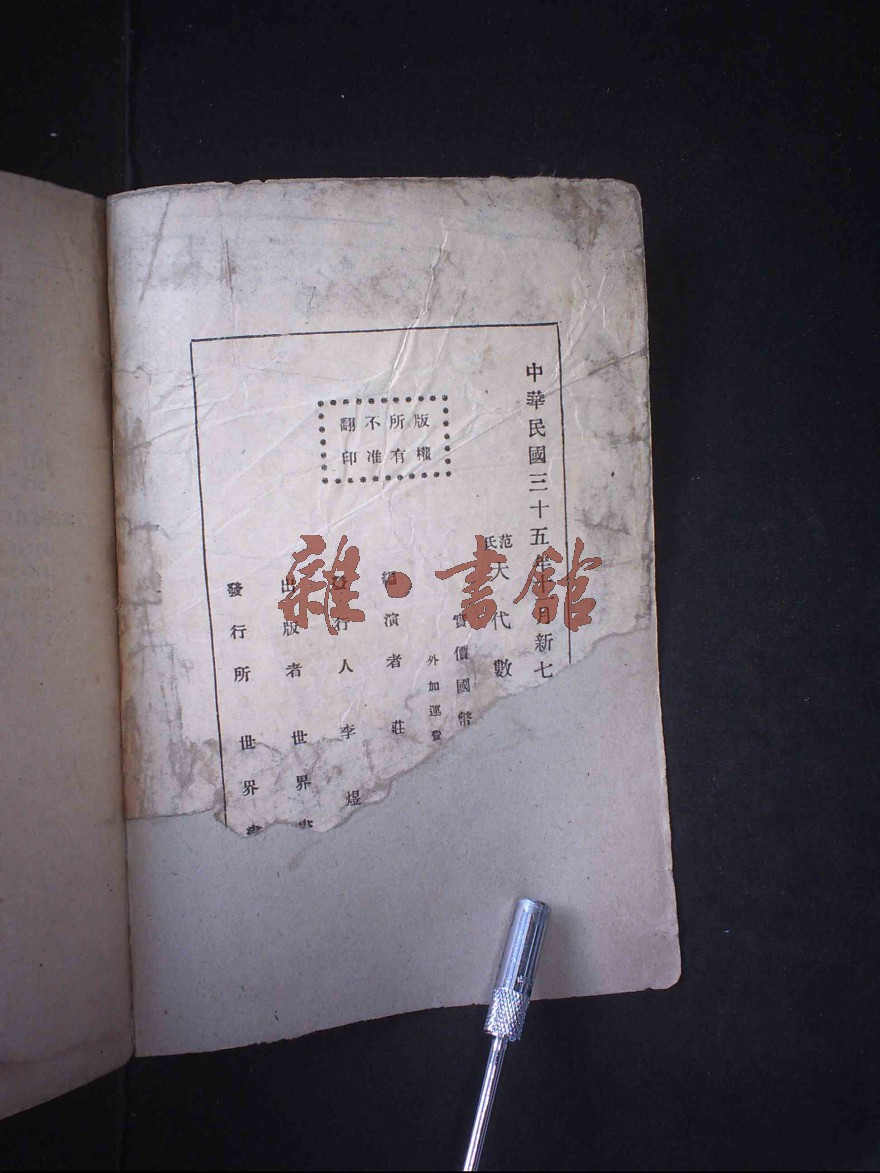 中華民國三十五年十月新七
范氏大代數
實價國幣
外加運費
版權
所有
不准
翻印
編演者 莊
發行人 李煜
出版者 世界書
發行所 世界書
雜·書館